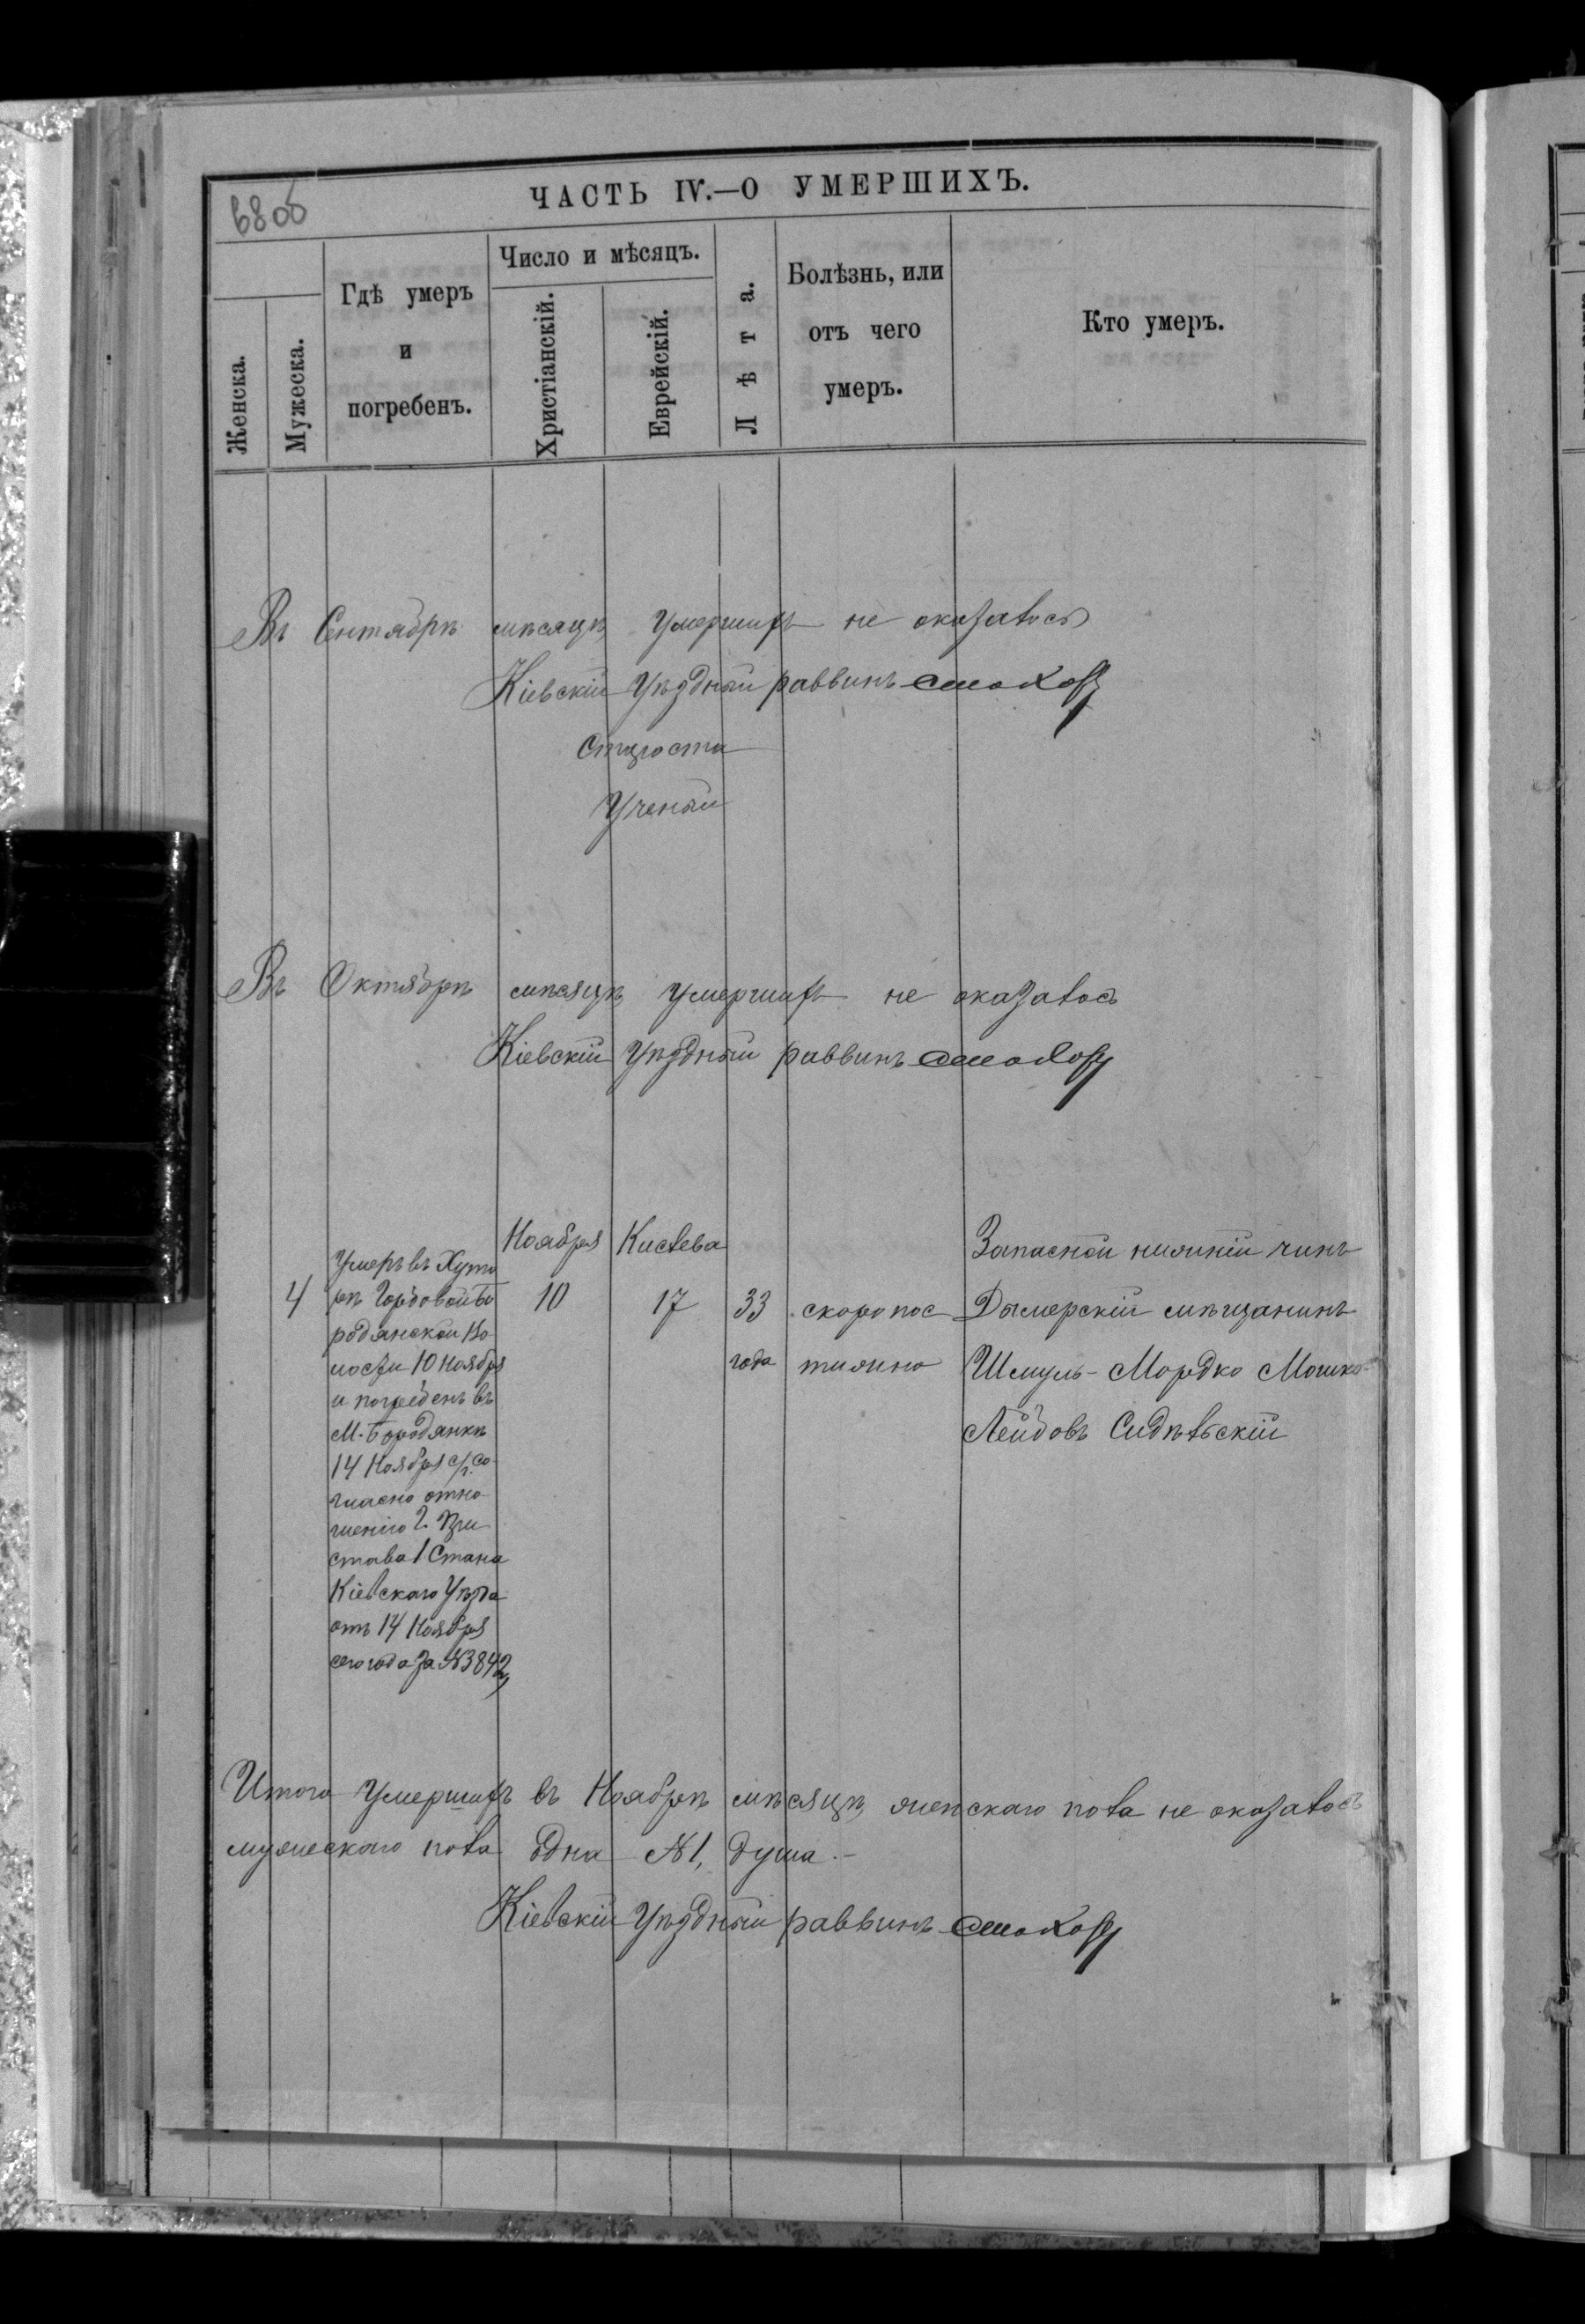 680б
ЧАСТЬ IV.—О УМЕРШИХЪ.
Женска.
Мужеска.
Гдѣ умеръ
и
погребенъ.
Число и мѣсяцъ.
Христіанскій.
Еврейскій.
Лѣта.
Болѣзнь, или
отъ чего
умеръ.
Кто умеръ.
Въ Сентябрѣ мѣсяцѣ умершихъ не оказалось
Кіевскій Уѣздный раввинъ
Староста
Ученый
Въ Октябрѣ мѣсяцѣ умершихъ не оказалось
Кіевскій Уѣздный раввинъ
4
Умеръ въ Хуто
рѣ Бо
родянской Во
лости 10 Ноября
и погребенъ въ
М. Бородянкѣ
14 Ноября с/г. со
гласно отно
шенію г. При
става 1 Стана
Кіевскаго Уѣзда
отъ 14 Ноября
сего года за №3842,
Ноября
10
Кислева
17
33
года
скоропос
тижно
Запасной нижній чинъ
Дымерскій мѣщанинъ
Шмуль-Мордко Мошко-
Лейбовъ
Итого умершихъ въ Ноябрѣ мѣсяцѣ женскаго пола не оказалось
мужескаго пола Одна №1, душа.-
Кіевскій Уѣздный раввинъ